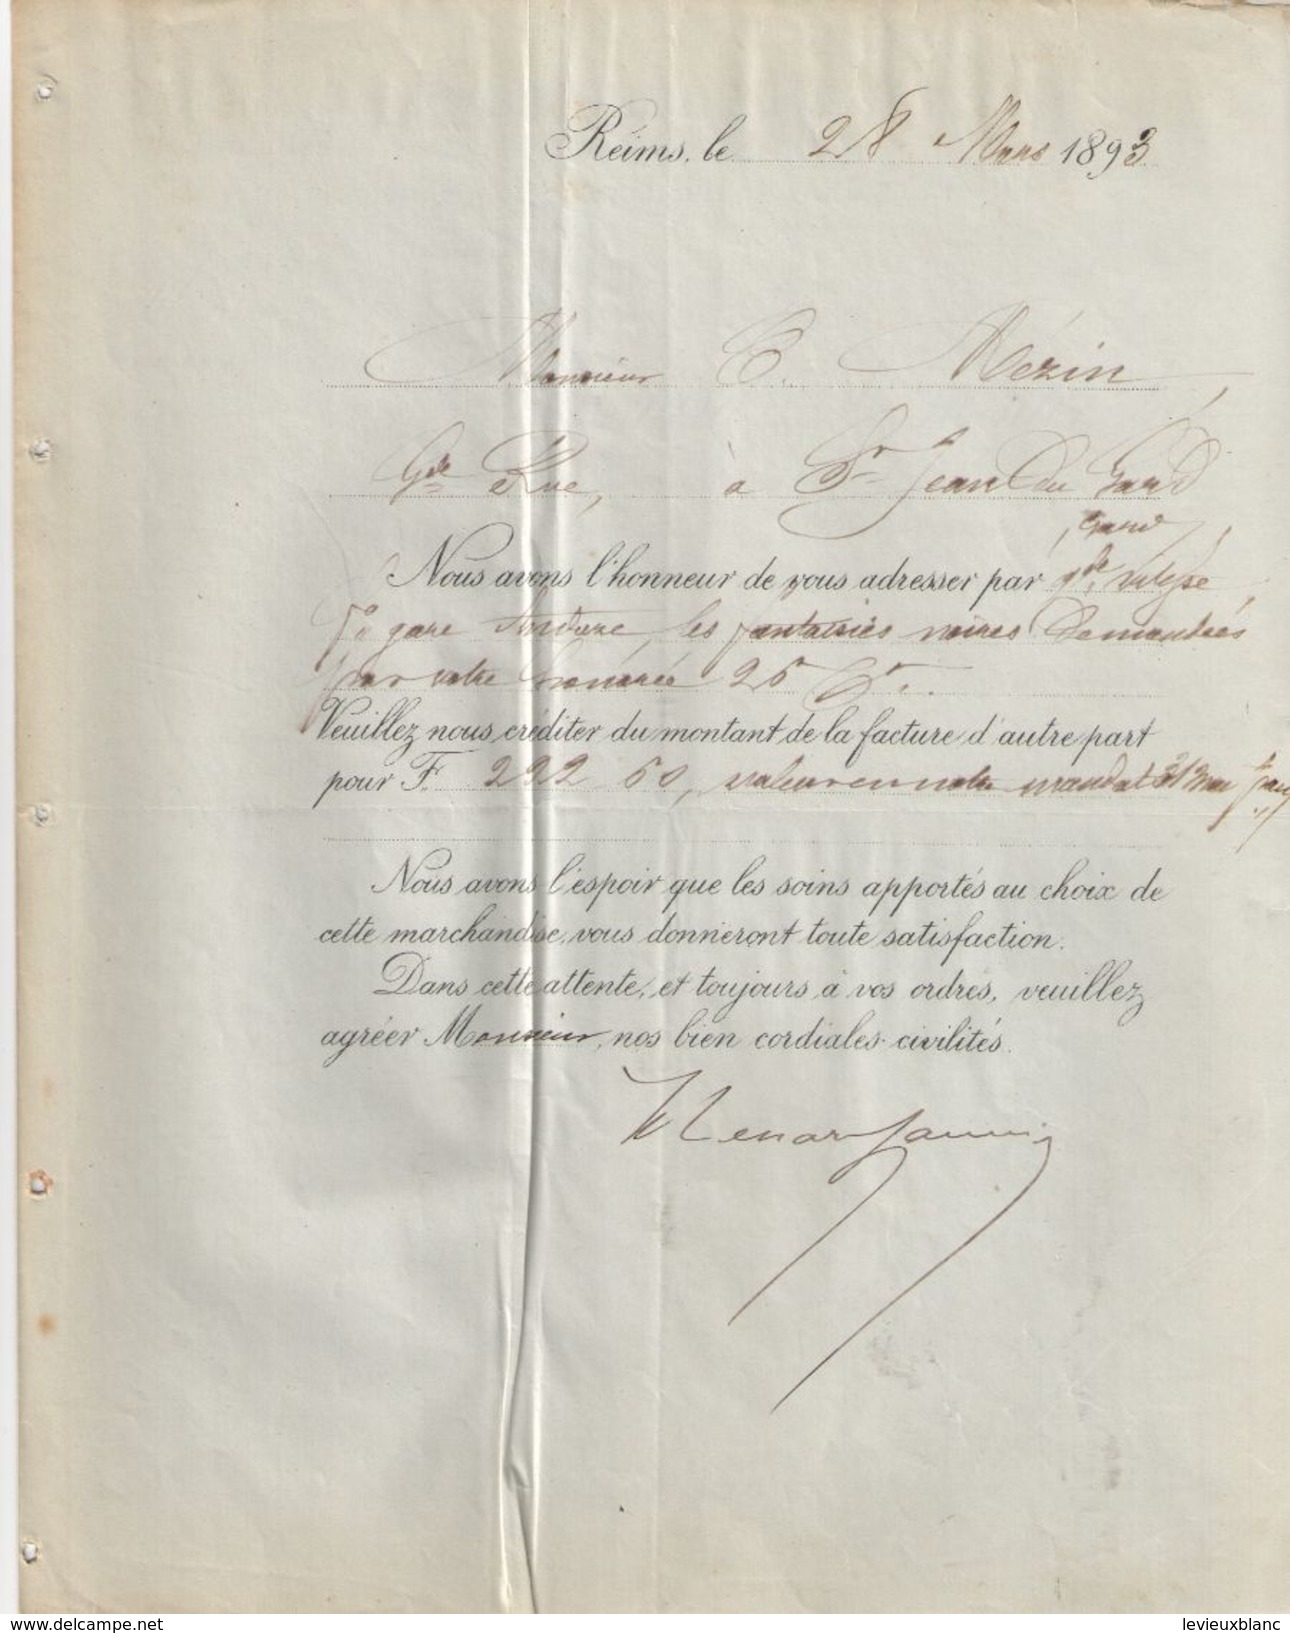 Reims, le 28 Mars 1893
Monsieur C. Mézin,
Gde Rue, à St Jean du Gard
Gard,
Nous avons l'honneur de vous adresser par gde vitesse,
fo gare Anduze, les fantaisies noires demandées
par votre honorée 25 Ct.
Veuillez nous créditer du montant de la facture d'autre part
pour F. 222 60, valeur en notre mandat 31 Mai
Nous avons l'espoir que les soins apportés au choix de
cette marchandise, vous donneront toute satisfaction.
Dans cette attente, et toujours à vos ordres, veuillez
agréer Monsieur, nos bien cordiales civilités.
delcampe.net
levieuxblanc